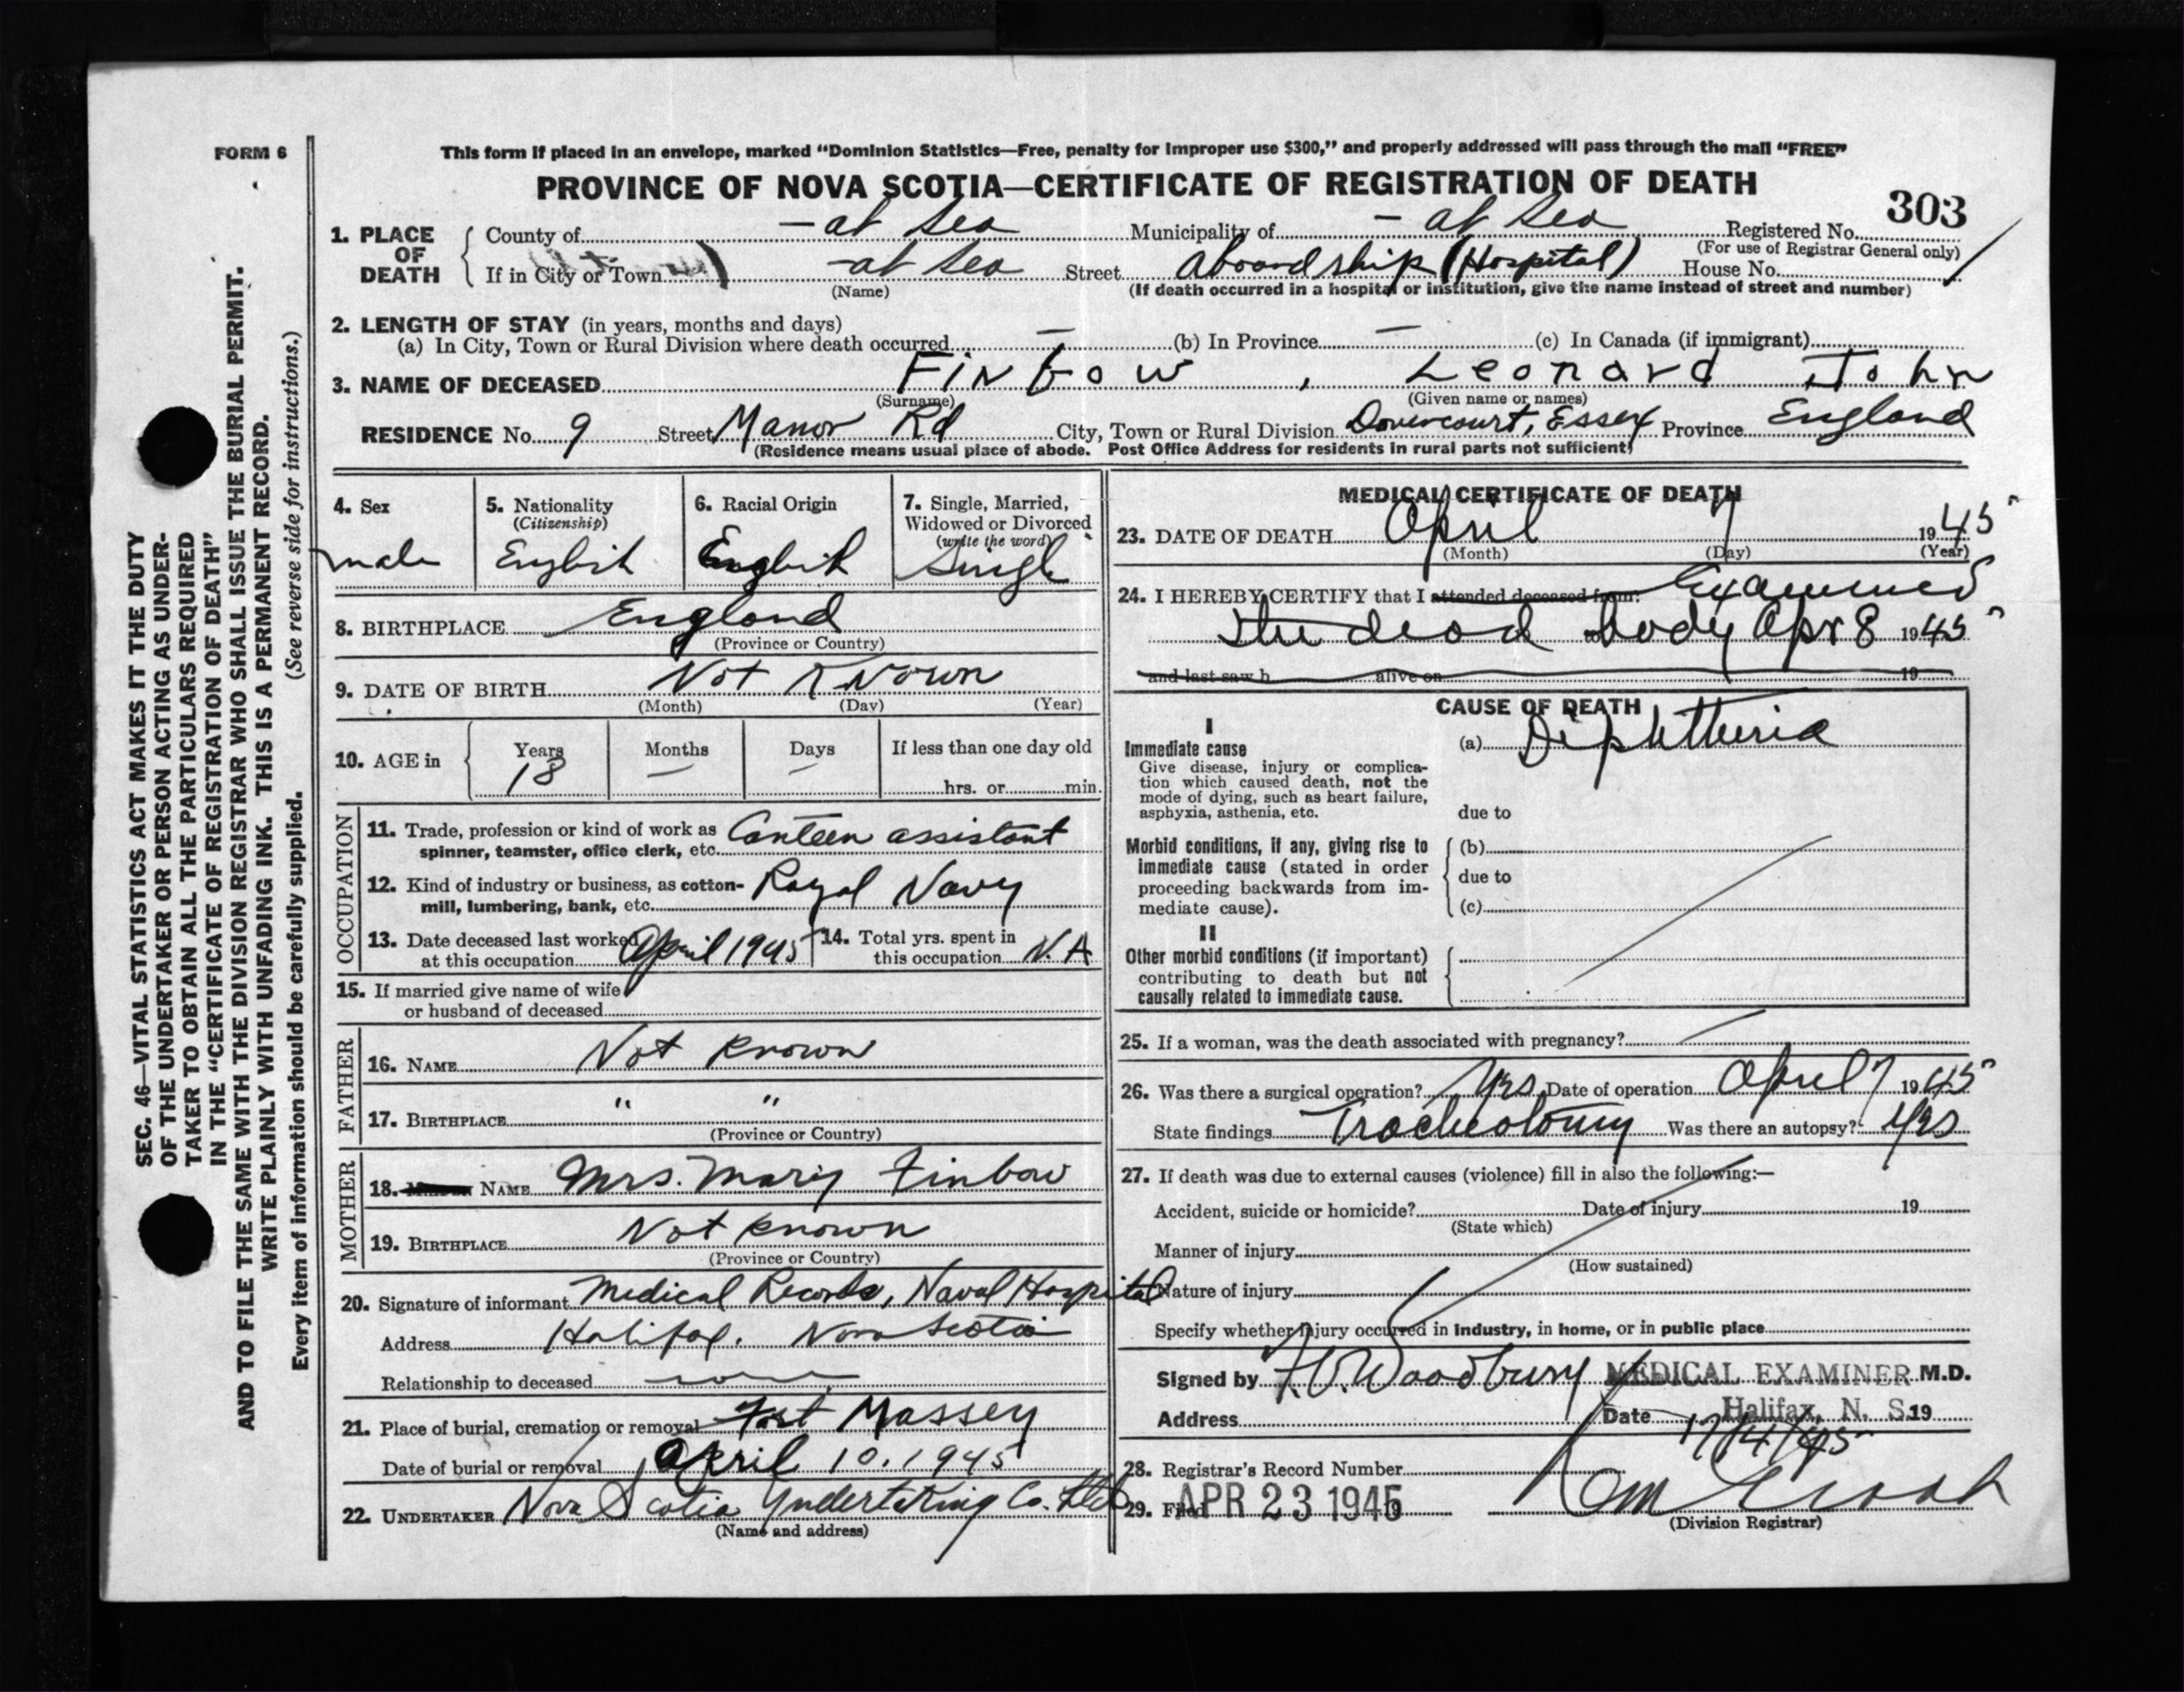 FORM 6
This form if placed in an envelope, marked “Dominion Statistics—Free, penalty for improper use $300,” and properly addressed will pass through the mail “FREE”
PROVINCE OF NOVA SCOTIA—CERTIFICATE OF REGISTRATION OF DEATH
303
1. PLACE OF DEATH
County of - at sea Municipality of - at sea Registered No.
(For use of Registrar General only)
If in City or Town - at sea Street Aboard ship (Hospital) House No.
(Name) (If death occurred in a hospital or institution, give the name instead of street and number)
2. LENGTH OF STAY (in years, months and days)
(a) In City, Town or Rural Division where death occurred — (b) In Province — (c) In Canada (if immigrant)
3. NAME OF DECEASED Finbow, Leonard John
(Surname) (Given name or names)
RESIDENCE No. 9 Street Manor Rd City, Town or Rural Division Dovercourt, Essex Province England
(Residence means usual place of abode. Post Office Address for residents in rural parts not sufficient)
SEC. 46—VITAL STATISTICS ACT MAKES IT THE DUTY
OF THE UNDERTAKER OR PERSON ACTING AS UNDER-
TAKER TO OBTAIN ALL THE PARTICULARS REQUIRED
IN THE “CERTIFICATE OF REGISTRATION OF DEATH”
AND TO FILE THE SAME WITH THE DIVISION REGISTRAR WHO SHALL ISSUE THE BURIAL PERMIT.
WRITE PLAINLY WITH UNFADING INK. THIS IS A PERMANENT RECORD.
Every item of information should be carefully supplied. (See reverse side for instructions.)
4. Sex male
5. Nationality (Citizenship) English
6. Racial Origin English
7. Single, Married, Widowed or Divorced (write the word) Single
8. BIRTHPLACE England
(Province or Country)
9. DATE OF BIRTH Not Known
(Month) (Day) (Year)
10. AGE in Years 18 Months — Days — If less than one day old
hrs. or min.
OCCUPATION
11. Trade, profession or kind of work as Canteen assistant
spinner, teamster, office clerk, etc.
12. Kind of industry or business, as cotton- Royal Navy
mill, lumbering, bank, etc.
13. Date deceased last worked at this occupation April 1945
14. Total yrs. spent in this occupation N.A
15. If married give name of wife
or husband of deceased
FATHER
16. NAME Not known
17. BIRTHPLACE " "
(Province or Country)
MOTHER
18. MAIDEN NAME Mrs. Mary Finbow
19. BIRTHPLACE Not known
(Province or Country)
20. Signature of informant Medical Records, Naval Hospital
Address Halifax, Nova Scotia
Relationship to deceased none
21. Place of burial, cremation or removal Fort Massey
Date of burial or removal April 10, 1945
22. UNDERTAKER Nova Scotia Undertaking Co. Ltd
(Name and address)
MEDICAL CERTIFICATE OF DEATH
23. DATE OF DEATH April 7 1945
(Month) (Day) (Year)
24. I HEREBY CERTIFY that I attended deceased from: Examined
the dead body Apr 8 1945
and last saw h alive on 19
CAUSE OF DEATH
I
Immediate cause
Give disease, injury or complica-
tion which caused death, not the
mode of dying, such as heart failure,
asphyxia, asthenia, etc.
(a) Diphtheria
due to
Morbid conditions, if any, giving rise to
immediate cause (stated in order
proceeding backwards from im-
mediate cause).
(b)
due to
(c)
II
Other morbid conditions (if important)
contributing to death but not
causally related to immediate cause.
25. If a woman, was the death associated with pregnancy?
26. Was there a surgical operation? Yes Date of operation April 7 1945
State findings Tracheotomy Was there an autopsy? Yes
27. If death was due to external causes (violence) fill in also the following:—
Accident, suicide or homicide? Date of injury 19
(State which)
Manner of injury
(How sustained)
Nature of injury
Specify whether injury occurred in industry, in home, or in public place
Signed by Woodbury MEDICAL EXAMINER M.D.
Address Date Halifax, N. S. 19
17/4/45
28. Registrar's Record Number
29. Filed APR 23 1945
(Division Registrar)